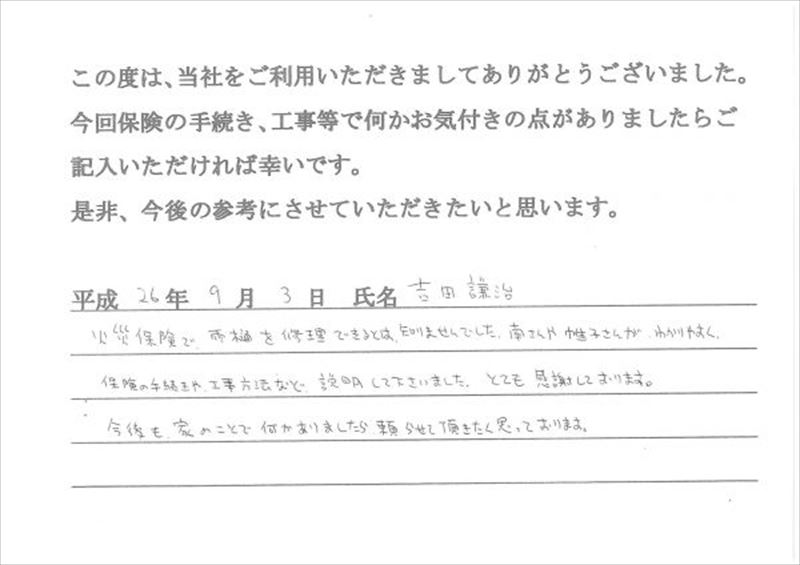 この度は、当社をご利用いただきましてありがとうございました。
今回保険の手続き、工事等で何かお気付きの点がありましたらご
記入いただければ幸いです。
是非、今後の参考にさせていただきたいと思います。
平成 26年 9月 3日 氏名 吉田謙治
火災保険で、雨樋を修理できるとは、知りませんでした。南さんや さんが、わかりやすく、
保険の手続きや、工事方法など、説明して下さいました。とても感謝しております。
今後も、家のことで何かありましたら、頼らせて頂きたく思っております。